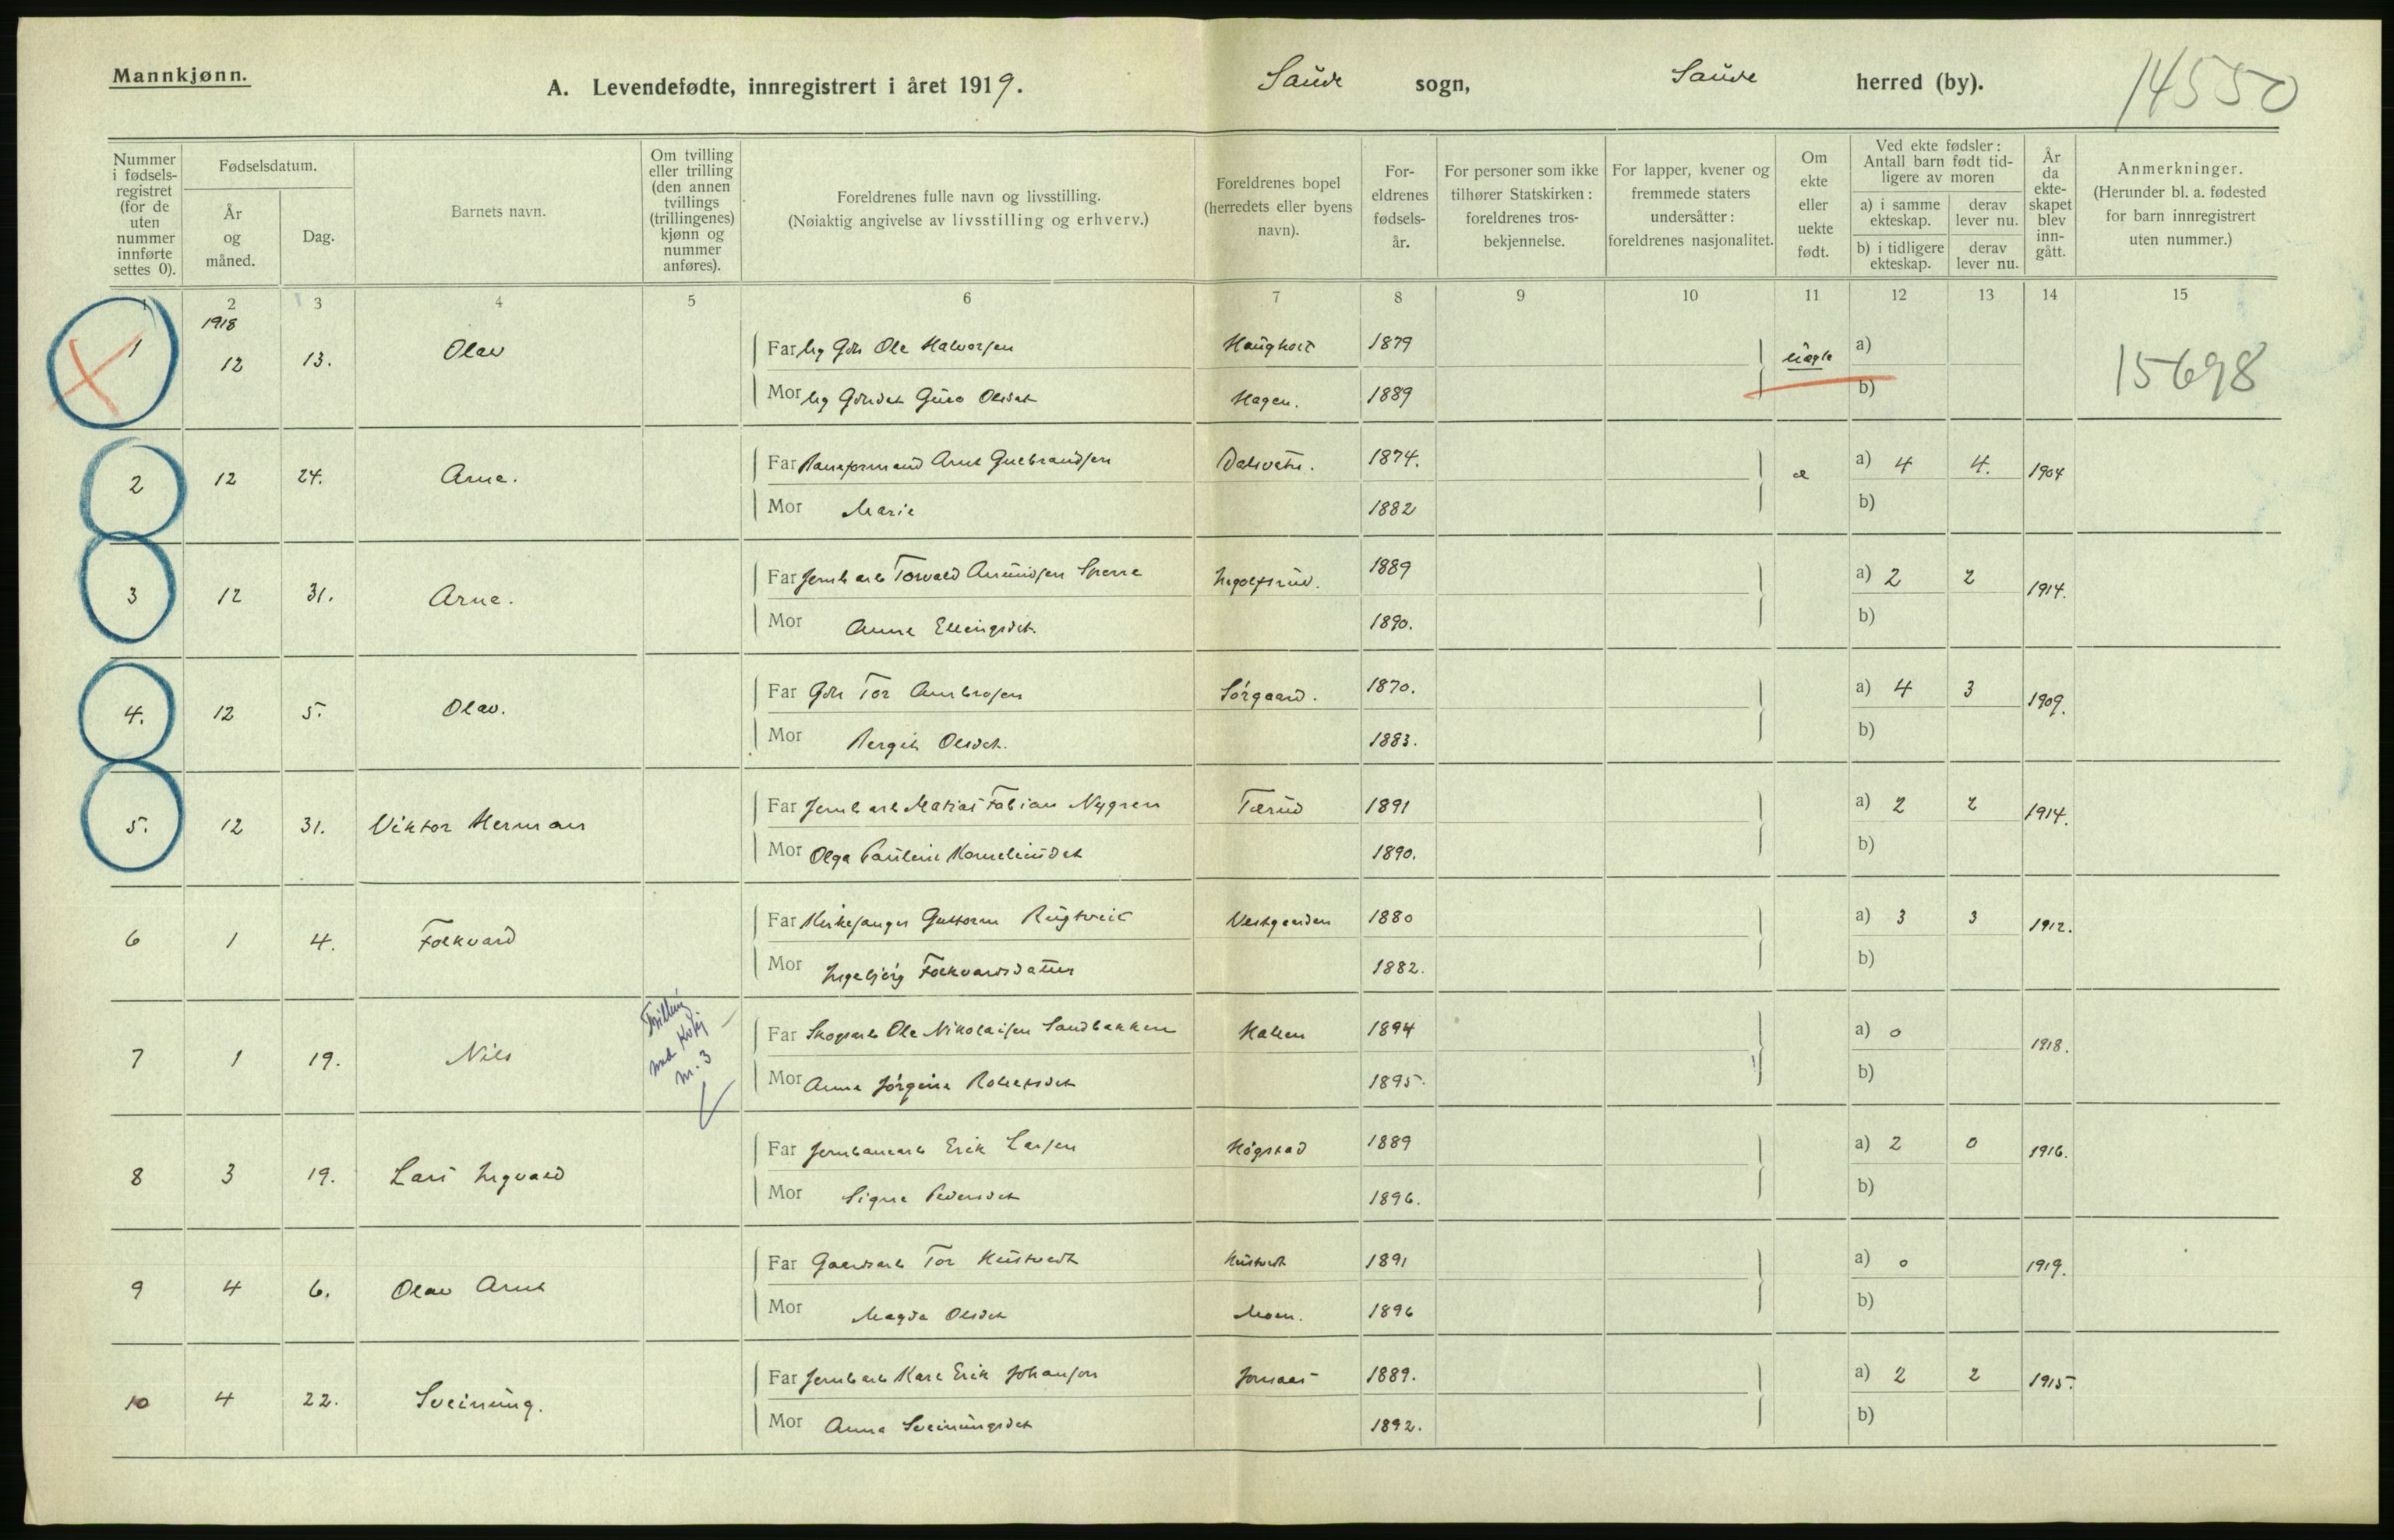 Mannkjønn.
A. Levendefødte, innregistrert i året 1919.
Saude sogn,
Saude herred (by).
14550
Nummer i fødsels-registret (for de uten nummer innførte settes 0).
Fødselsdatum.
År og måned.
Dag.
Barnets navn.
Om tvilling eller trilling (den annen tvillings (trillingenes) kjønn og nummer anføres).
Foreldrenes fulle navn og livsstilling.
(Nøiaktig angivelse av livsstilling og erhverv.)
Foreldrenes bopel (herredets eller byens navn).
For-eldrenes fødsels-år.
For personer som ikke tilhører Statskirken: foreldrenes tros-bekjennelse.
For lapper, kvener og fremmede staters undersåtter: foreldrenes nasjonalitet.
Om ekte eller uekte født.
Ved ekte fødsler: Antall barn født tid-ligere av moren
a) i samme ekteskap.
derav lever nu.
b) i tidligere ekteskap.
derav lever nu.
År da ekte-skapet blev inn-gått.
Anmerkninger.
(Herunder bl. a. fødested for barn innregistrert uten nummer.)
1 2 3 4 5 6 7 8 9 10 11 12 13 14 15
1918
1 12 13. Olav Far Ug Gdr Ole Halvorsen Haugholt 1879 uægte a)
Mor Ug Guro Olsdat Hagen. 1889 b)
15698
2 12 24. Arne. Far Baneformand Arne Gulbrandsen 1874. æ a) 4 4. 1904
Mor Marie 1882 b)
3 12 31. Arne. Far Jernb arb Torvald Amundsen Sperre Ingolfsrud. 1889 a) 2 2 1914.
Mor Anna Ellingsdat. 1890. b)
4. 12 5. Olav. Far Gdr Tor Ambrosen Sørgaard. 1870. a) 4 3 1909.
Mor Bergit Olsdat. 1883. b)
5. 12 31. Viktor Herman Far Jernb arb Matias Fabian Nygren 1891 a) 2 2 1914.
Mor Olga Pauline 1890. b)
6 1 4. Folkvard Far Kirkesanger Guttorm Rugtveit Vestgarden 1880 a) 3 3 1912.
Mor Ingebjørg Folkvardsdatter 1882. b)
7 1 19. Nils Tvilling med Kvkj nr. 3 Far Skogsarb Ole Nikolaisen Sandbakken 1894 a) 0 1918.
Mor Anna Jørgine 1895. b)
8 3 19. Lars Ingvald Far Jernbanearb Erik Larsen Høgstad 1889 a) 2 0 1916.
Mor Signe Pedersdat 1896. b)
9 4 6. Olav Arnt Far Gaardsarb Tor Hustvedt Hustvedt 1891 a) 0 1919.
Mor Magda Olsdat Moen. 1896 b)
10 4 22. Sveinung. Far Jernb arb Karl Erik Johanson Jonsaas 1889. a) 2 2 1915.
Mor Anna Sveinungsdat 1892. b)